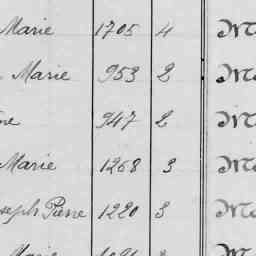 Marie 1705 4
Marie 953 2
ne 947 2
Marie 1268 3
seph Pierre 1220 3
Marie